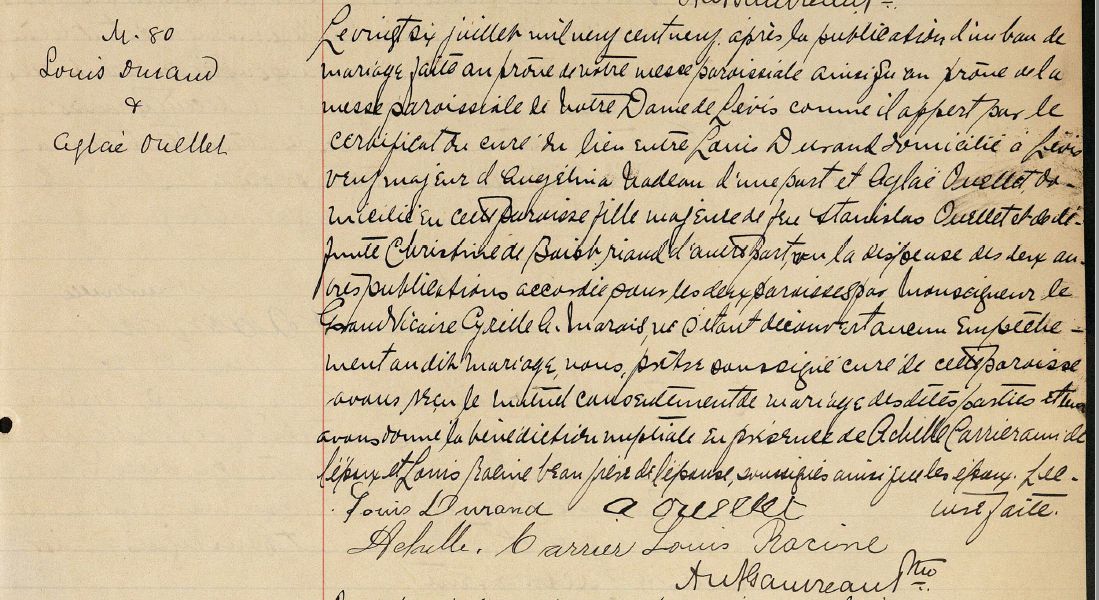 M. 80
Louis Durand
&
Aglaé Ouellet
Le vingt six juillet mil neuf cent neuf, après la publication d'un ban de
mariage faite au prône de notre messe paroissiale ainsi qu'au prône de la
messe paroissiale de Notre Dame de Lévis comme il appert par le
certificat du curé du lieu entre Louis Durand domicilié à Lévis
veuf majeur d'Angélina Nadeau d'une part et Aglaé Ouellet do-
miciliée en cette paroisse fille majeure de feu Stanislas Ouellet et de dé-
funte Christine de d'autre part, vu la dispense des deux au-
tres publications accordée pour les deux paroisses par Monseigneur le
Grand Vicaire Cyrille A. Marois, ne s'étant découvert aucun empêche-
ment au dit mariage, nous, prêtre soussigné curé de cette paroisse
avons reçu le mutuel consentement de mariage des dites parties et leur
avons donné la bénédiction nuptiale en présence de Achille Carrier ami de
l'époux et Louis Racine beau frère de l'épouse, soussignés ainsi que les époux. Lec-
ture faite.
Louis Durand A Ouellet
Achille Carrier Louis Racine
Ptre